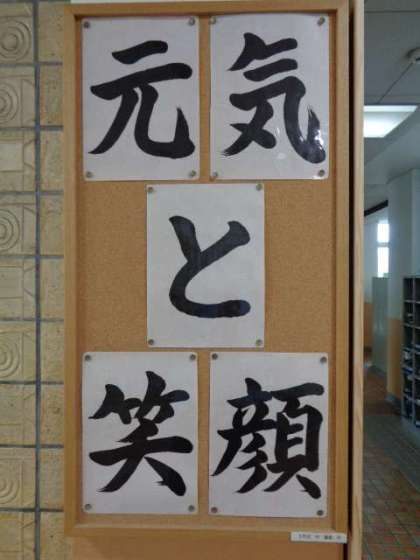 元気
と
笑顔